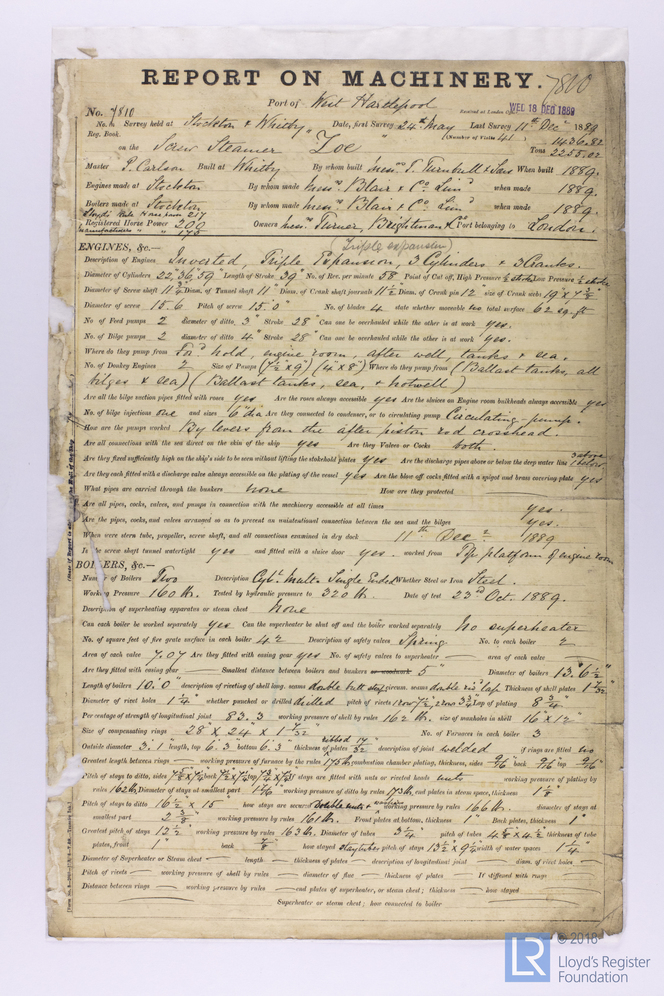 REPORT ON MACHINERY. 7810
Port of West Hartlepool
No. 7810 Received at London WED. 18 DEC 1889
No. in Survey held at Stockton & Whitby Date, first Survey 24th May Last Survey 11th Dec 1889
Reg. Book. (Number of Visits 41) 1436.82
on the Screw Steamer "Zoe" Tons 2255.02
Master P. Carlson Built at Whitby By whom built Messrs T. Turnbull & Sons When built 1889.
Engines made at Stockton By whom made Messrs Blair & Co Limd when made 1889.
Boilers made at Stockton By whom made Messrs Blair & Co Limd when made 1889.
Lloyd's Rule 217
Registered Horse Power 200 Owners Messrs Turner, Brightman & Co Port belonging to London.
ENGINES, &c.— (Triple expansion)
Description of Engines Inverted, Triple Expansion, 3 Cylinders & 3 Cranks.
Diameter of Cylinders 22", 36", 59" Length of Stroke 39" No. of Rev. per minute 58 Point of Cut off, High Pressure Low Pressure
Diameter of Screw shaft Diam. of Tunnel shaft 11" Diam. of Crank shaft journals 11 1/2 Diam. of Crank pin 12" size of Crank webs
Diameter of screw 15.6 Pitch of screw 15.0" No. of blades 4 state whether moveable no total surface 62 sq. ft
No. of Feed pumps 2 diameter of ditto 3" Stroke 28" Can one be overhauled while the other is at work yes.
No. of Bilge pumps 2 diameter of ditto 4" Stroke 28" Can one be overhauled while the other is at work yes.
Where do they pump from Ford hold, engine room, after well, tanks & sea.
No. of Donkey Engines 2 Size of Pumps (7 1/2" x 9") (4" x 8") Where do they pump from (Ballast tanks, all
bilges & sea) (Ballast tanks, sea, & hotwell)
Are all the bilge suction pipes fitted with roses yes Are the roses always accessible yes Are the sluices on Engine room bulkheads always accessible yes
No. of bilge injections one and sizes 6" dia Are they connected to condenser, or to circulating pump Circulating-pump.
How are the pumps worked By levers from the after piston rod crosshead.
Are all connections with the sea direct on the skin of the ship yes Are they Valves or Cocks both.
Are they fixed sufficiently high on the ship's side to be seen without lifting the stokehold plates yes Are the discharge pipes above or below the deep water line 3 above 1 below
Are they each fitted with a discharge valve always accessible on the plating of the vessel yes Are the blow off cocks fitted with a spigot and brass covering plate yes
What pipes are carried through the bunkers none How are they protected
Are all pipes, cocks, valves, and pumps in connection with the machinery accessible at all times yes.
Are the pipes, cocks, and valves arranged so as to prevent an unintentional connection between the sea and the bilges yes.
When were stern tube, propeller, screw shaft, and all connections examined in dry dock 11th Decr 1889
Is the screw shaft tunnel watertight yes and fitted with a sluice door yes. worked from Top platform of engine room
BOILERS, &c.—
Number of Boilers Two Description Cyl. Mult. Single Ended Whether Steel or Iron Steel.
Working Pressure 160 lb. Tested by hydraulic pressure to 320 lb. Date of test 23rd Oct. 1889.
Description of superheating apparatus or steam chest None
Can each boiler be worked separately yes Can the superheater be shut off and the boiler worked separately No superheater
No. of square feet of fire grate surface in each boiler 42 Description of safety valves Spring No. to each boiler 2
Area of each valve 7.07 Are they fitted with easing gear yes No. of safety valves to superheater — area of each valve —
Are they fitted with easing gear — Smallest distance between boilers and bunkers or woodwork 5" Diameter of boilers 13' 6 1/2"
Length of boilers 10.0" description of riveting of shell long. seams double butt strap circum. seams double riv. lap Thickness of shell plates 1 7/32"
Diameter of rivet holes 1 1/4" whether punched or drilled drilled pitch of rivets Lap of plating 8 3/4"
Per centage of strength of longitudinal joint 83.3 working pressure of shell by rules 162 lb. size of manholes in shell 16" x 12"
Size of compensating rings 28" x 24" x 1 7/32 No. of Furnaces in each boiler 3
Outside diameter 3.1" length, top 6.3" bottom 6.3" thickness of plates ribbed 17/32 description of joint welded if rings are fitted no
Greatest length between rings — working pressure of furnace by the rules 173 lb combustion chamber plating, thickness, sides 9/16" back 9/16 top 9/16"
Pitch of stays to ditto, sides back top If stays are fitted with nuts or riveted heads nuts working pressure of plating by
rules 162 lb Diameter of stays at smallest part working pressure of ditto by rules 173 lb. end plates in steam space, thickness 1 1/8"
Pitch of stays to ditto 16 1/2" x 15" how stays are secured double nuts & washers working pressure by rules 166 lb. diameter of stays at
smallest part 2 3/8" working pressure by rules 161 lb. Front plates at bottom, thickness 1" Back plates, thickness 1"
Greatest pitch of stays 12 1/2" working pressure by rules 163 lb. Diameter of tubes 3 1/4" pitch of tubes 4 5/8 x 4 1/2 thickness of tube
plates, front 1" back 7/8" how stayed Stay tubes pitch of stays 13 1/2 x 9 1/4 width of water spaces 1 1/4"
Diameter of Superheater or Steam chest — length — thickness of plates — description of longitudinal joint — diam. of rivet holes —
Pitch of rivets — working pressure of shell by rules — diameter of flue — thickness of plates — If stiffened with rings —
Distance between rings — working pressure by rules — end plates of superheater, or steam chest; thickness — how stayed —
Superheater or steam chest; how connected to boiler —
LR © 2018
Lloyd's Register
Foundation